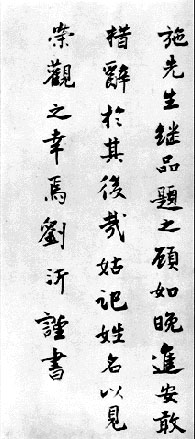 施先生继品題之顧如晚進安敢
措辭於其後哉姑記姓名以見
榮觀之幸焉劉沂謹書